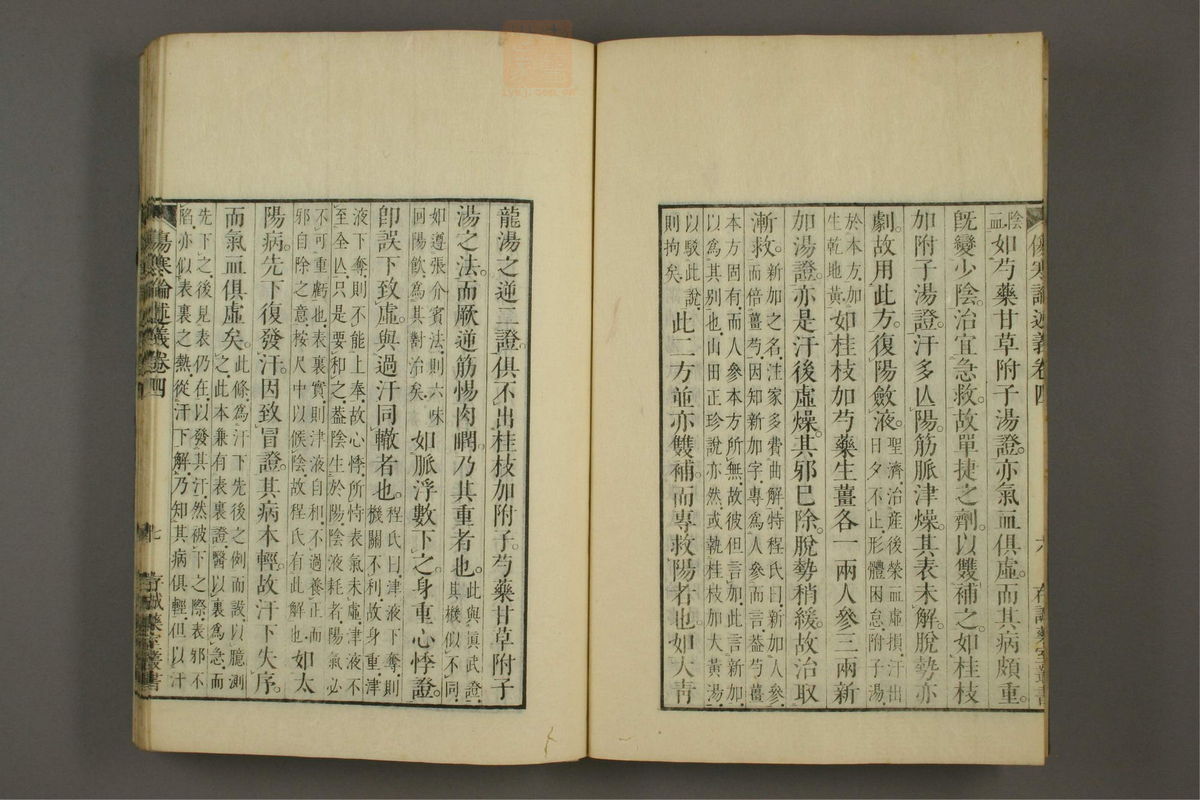 傷寒論述義卷四 六 存誠藥室叢書
陰
血 如芍藥甘草附子湯證。亦氣血俱虛。而其病頗重。
既變少陰。治宜急救。故單捷之劑。以雙補之。如桂枝
加附子湯證。汗多亾陽。筋脈津燥。其表未解。脫勢亦
劇。故用此方。復陽斂液。
聖濟。治産後榮血虛損。汗出
日夕不止。形體困怠。附子湯。
於本方。加
生乾地黃。
如桂枝加芍藥生薑各一兩人參三兩新
加湯證。亦是汗後虛燥。其邪已除。脫勢稍緩。故治取
漸救。
新加之名。注家多費曲解。特程氏曰。新加人參。
而倍薑芍。因知新加字。專爲人參而言。蓋芍薑
本方固有。而人參本方所無。故彼但言加。此言新加。
以爲其別也。山田正珍說亦然。或執桂枝加大黃湯。
以駁此說。
則拘矣。
此二方並亦雙補。而專救陽者也。如大青
龍湯之逆。二證。俱不出桂枝加附子。芍藥甘草附子
湯之法。而厥逆筋惕肉瞤。乃其重者也。
此與眞武證。
其機似不同。
如遵張介賓法。則六味
回陽飮。爲其對治矣。
如脈浮數。下之。身重心悸證。
卽誤下致虛。與過汗同轍者也。
程氏曰。津液下奪。則
機關不利。故身重。津
液下奪。則不能上奉。故心悸。所恃表氣未虛。津液不
至全亾。只是要和之。蓋陰生於陽。陰液耗者。陽氣必
不可重虧也。表裏實。則津液自和。不過養正而
邪自除之意。按尺中以候陰。故程氏有此解也。
如太
陽病。先下復發汗。因致冒證。其病本輕。故汗下失序。
而氣血俱虛矣。
此條。爲汗下先後之例而設。以臆測
之。此本兼有表裏證。醫以裏爲急。而
先下之。後見表仍在。以發其汗。然被下之際。表邪不
陷。亦似表裏之熱。從汗下解。乃知其病俱輕。但以汗
傷寒論述義卷四 七 存誠藥室叢書